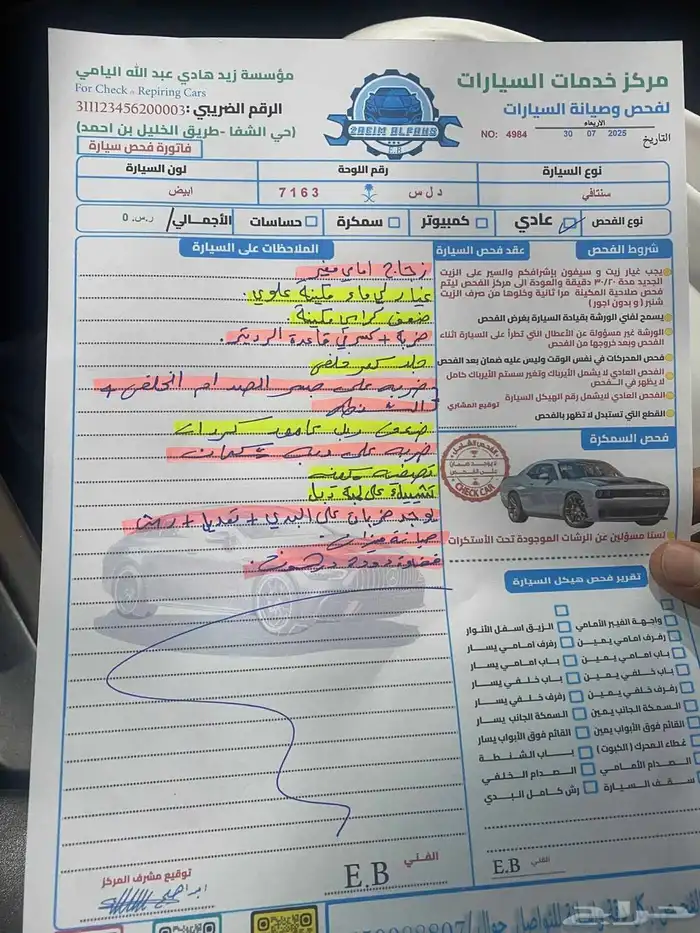 مركز خدمات السيارات
لفحص وصيانة السيارات
الاربعاء
التاريخ 30 07 2025 NO: 4984
ZAEIM ALFAHS
E.B
مؤسسة زيد هادي عبد الله اليامي
For Check & Repiring Cars
الرقم الضريبي: 311123456200003
(حي الشفا - طريق الخليل بن احمد)
فاتورة فحص سيارة
نوع السيارة رقم اللوحة لون السيارة
سنتافي د ل س 7163 ابيض
نوع الفحص عادي كمبيوتر سمكرة حساسات الأجمالي/ ر.س. 0
شروط الفحص عقد فحص السيارة
يجب غيار زيت و سيفون بإشرافكم والسير على الزيت
الجديد مدة ٣٠/٢٠ دقيقة والعودة الى مركز الفحص ليتم
فحص صلاحية المكينة مرا ثانية وخلوها من صرف الزيت
شنبر ( و بدون اجور )
يسمح لفني الورشة بقيادة السيارة بغرض الفحص
الورشة غير مسؤولة عن الأعطال التي تطرأ على السيارة اثناء
الفحص وبعد خروجها من الفحص
فحص المحركات في نفس الوقت وليس عليه ضمان بعد الفحص
الفحص العادي لا يشمل الأيرباك وتغير سستم الأيرباك كامل
لا يظهر في الفحص
الفحص العادي لايشمل رقم الهيكل السيارة توقيع المشتري
القطع التي تستبدل لا تظهر بالفحص
فحص السمكرة
CHECK CAR
لسنا مسؤلين عن الرشات الموجودة تحت الأستكرات
تقرير فحص هيكل السيارة
واجهة الفيبر الأمامي الزيق اسفل الأنوار
رفرف امامي يمين رفرف امامي يسار
باب امامي يمين باب امامي يسار
باب خلفي يمين باب خلفي يسار
رفرف خلفي يمين رفرف خلفي يسار
السمكة الجانب يمين السمكة الجانب يسار
القائم فوق الأبواب يمين القائم فوق الأبواب يسار
غطاء المحرك ( الكبوت ) باب الشنطة
الصدام الأمامي الصدام الخلفي
سقف السيارة رش كامل البدي
الفني E.B
الملاحظات على السيارة
زجاج امامي مغير
غيار لي ماء مكينة علوي
ضعف كراسي مكينة
ضربة + كسر في قاعدة الرديتر
جلد خلفي
ضربه على جسر الصدام الخلفي +
الشنطه
ضعف
ضربه على
مكينه
على لمبة
يوجد ضربات على البدي + تعديل + رش
الفني E.B
توقيع مشرف المركز
ابراهيم
حراج